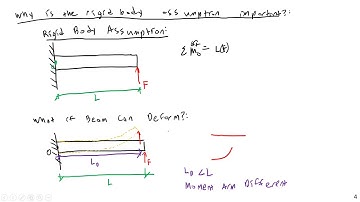 Why is the rigid body assumption important?:
Rigid Body Assumption:
F
L
What if Beam Can Deform?:
O
L₀
F
L
L₀ < L
Moment Arm Different
4